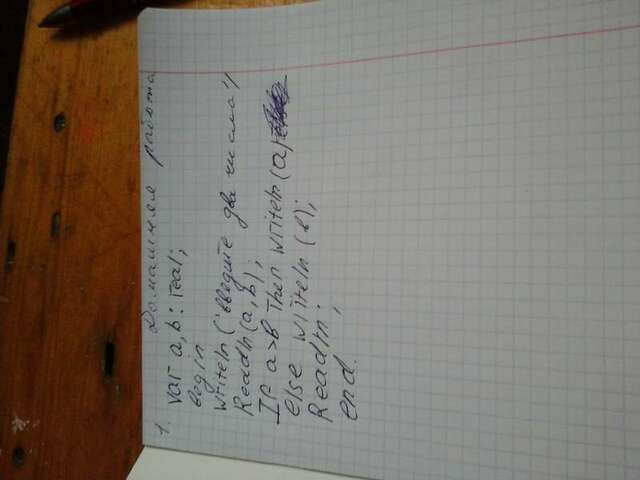 Домашняя работа
1. var a, b: real;
begin
writeln ('введите два числа');
Readln (a, b);
If a>b Then writeln (a)
else writeln (b);
Readln;
end.